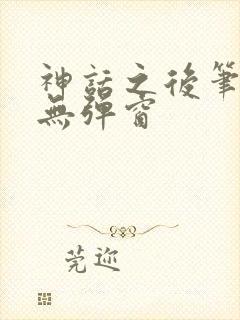 神話之後筆
無彈窗
莞迩